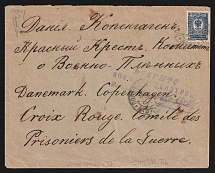 Данiя. Копенгаген.
Красный Крест. Комитет
о Военно-Пленных
Danemark. Copenhagen.
Croix Rouge. Comité des
Prisoniers de la Guerre.